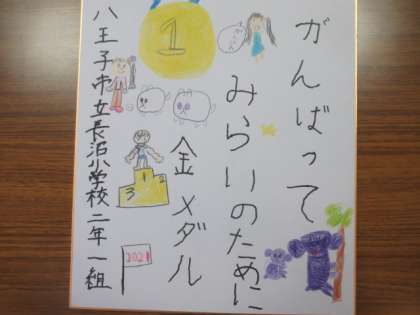 がんばって
みらいのために
金メダル
八王子市立長沼小学校二年一組
1
1
2
3
2021